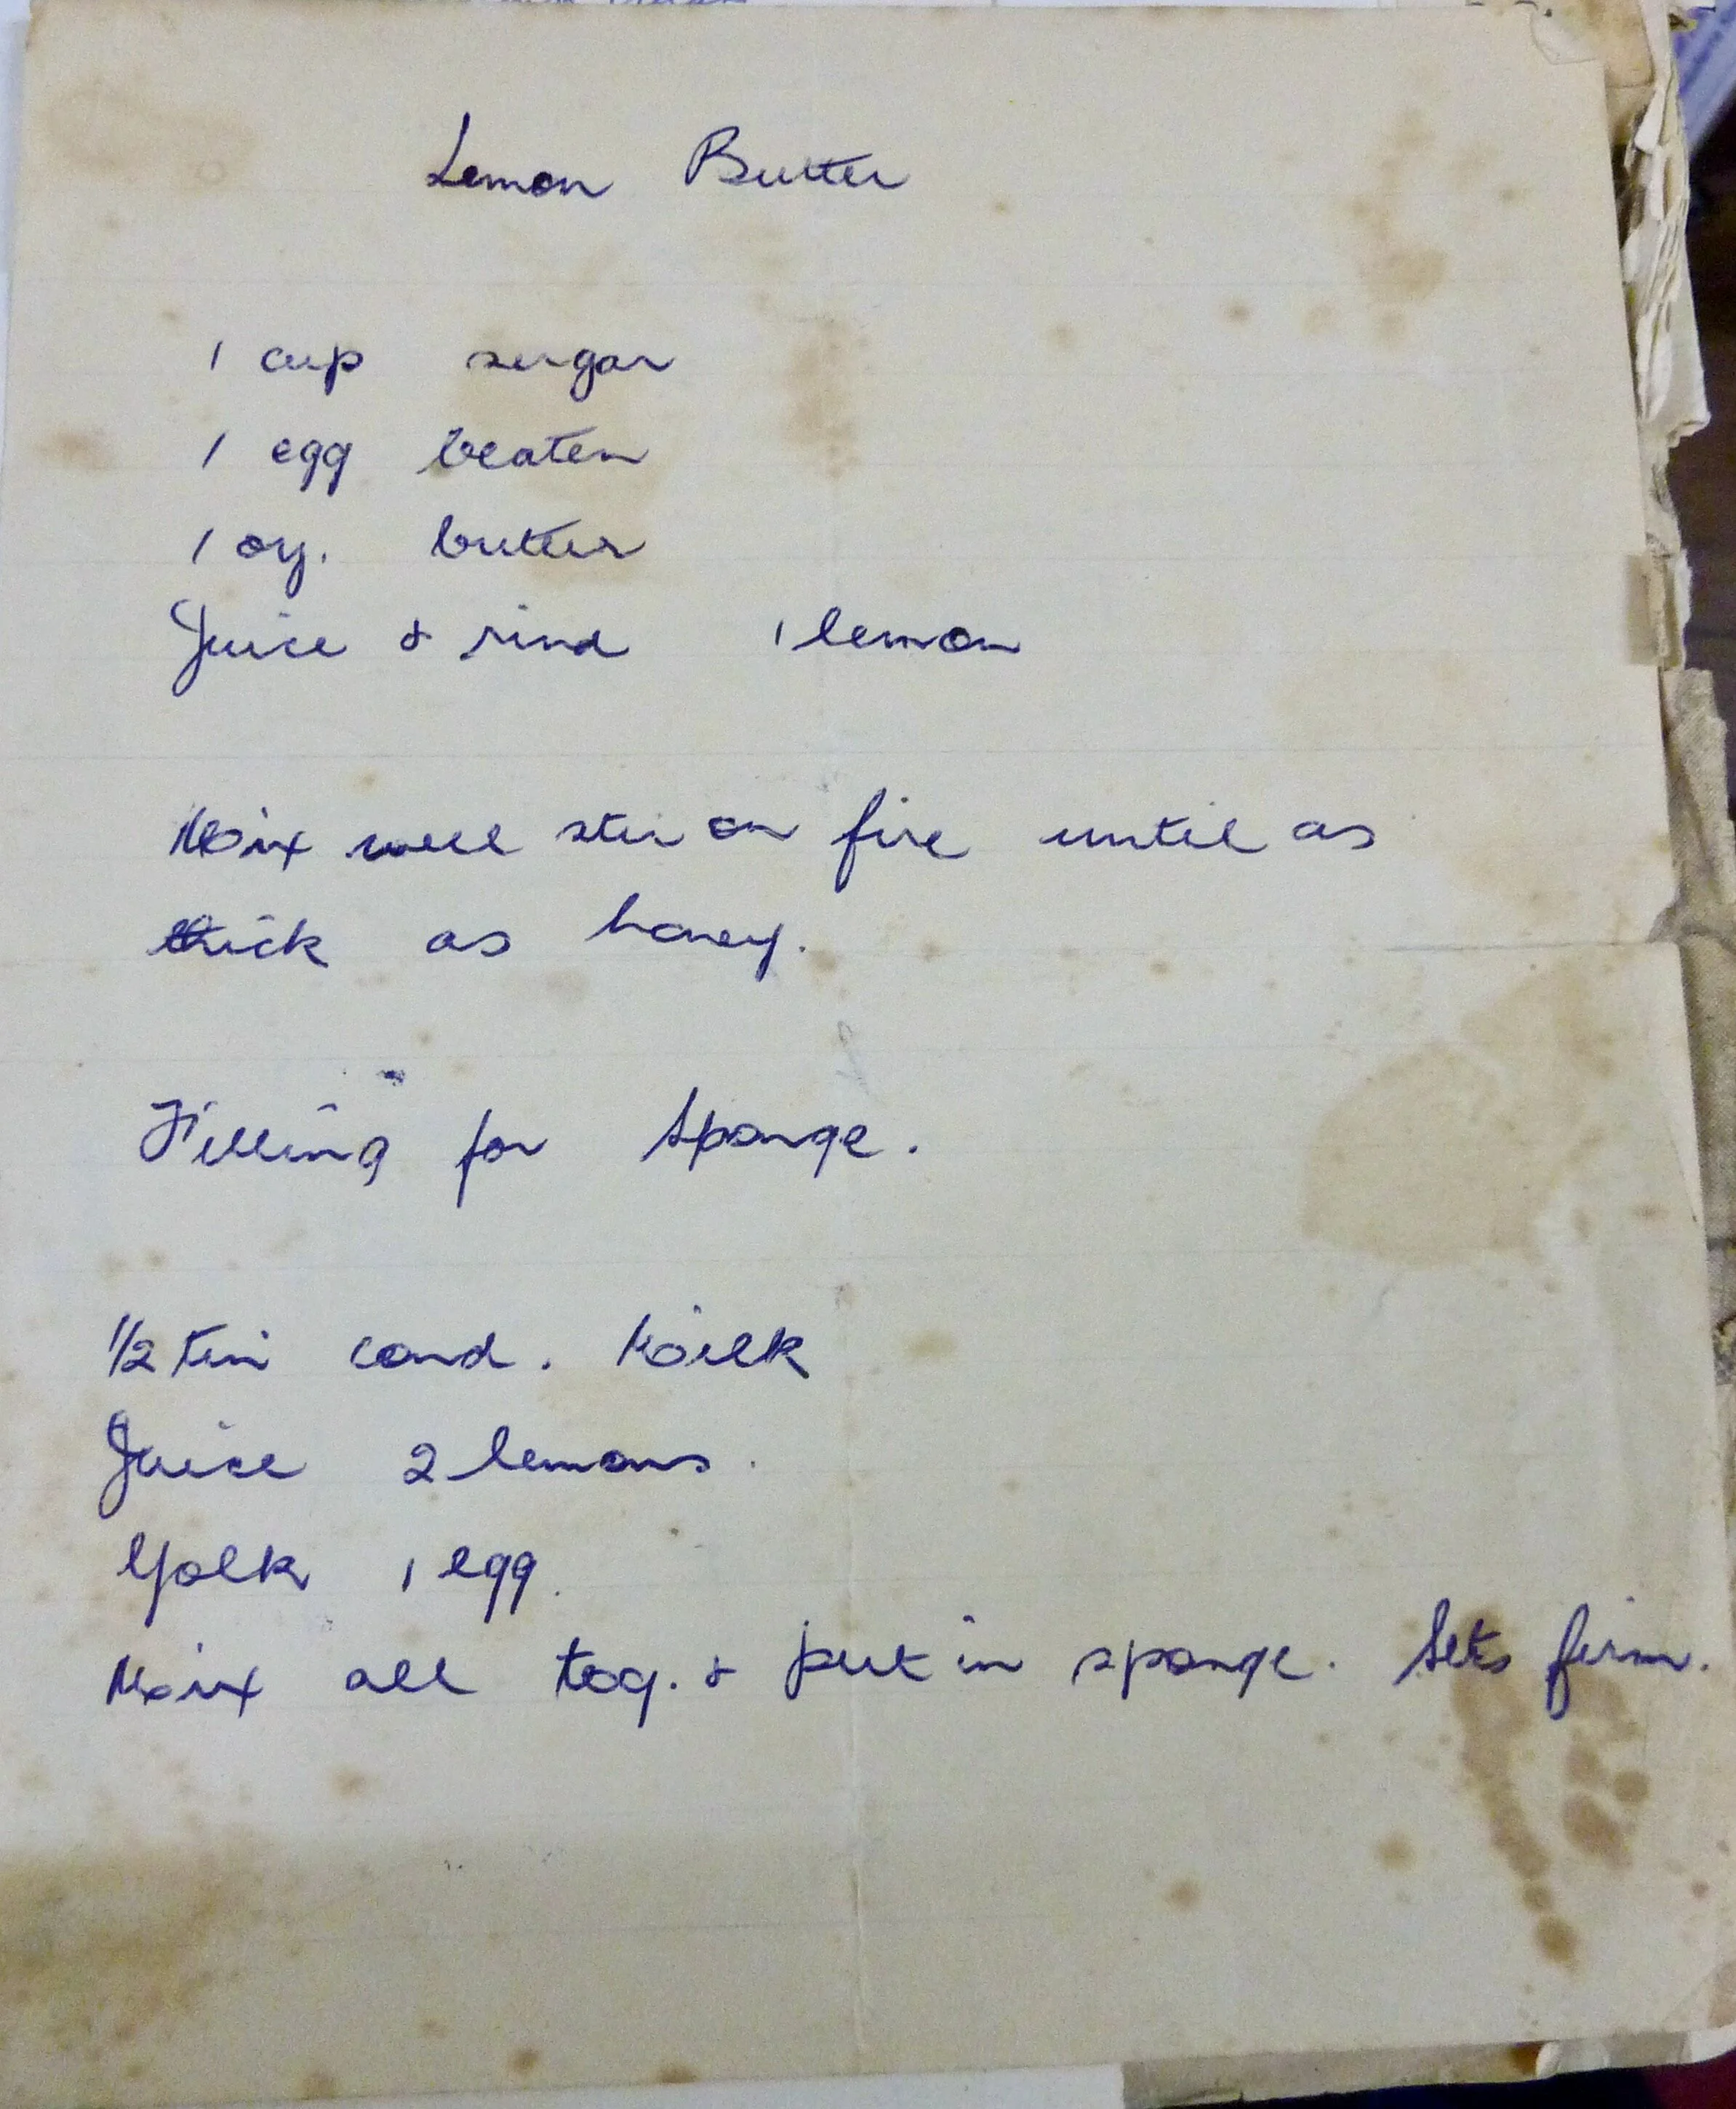 Lemon Butter
1 cup sugar
1 egg beaten
1 oz. butter
Juice & rind 1 lemon
Mix well stir on fire until as
thick as honey.
Filling for Sponge.
1/2 tin cond. Milk
Juice 2 lemons.
Yolk 1 egg.
Mix all tog. & put in sponge. Sets firm.